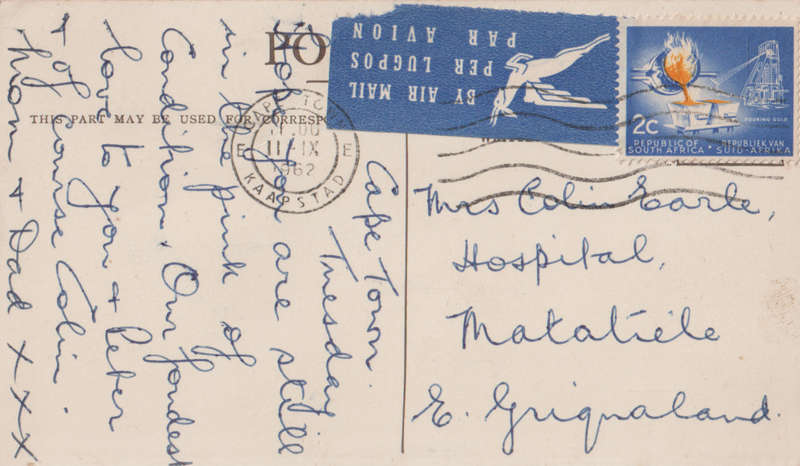 PO
THIS PART MAY BE USED FOR CORRESP
BY AIR MAIL
PER LUGPOS
PAR AVION
2c
POURING GOLD
REPUBLIC OF
SOUTH AFRICA
REPUBLIEK VAN
SUID-AFRIKA
11 IX
1962
E E
KAAPSTAD
Cape Town.
Tuesday
Hope you are still
in the pink of
Condition. Our fondest
love to you & Peter
& of course Colin.
Mom & Dad x x x
Mrs Colin Earle,
Hospital,
Matatiele
E. Griqualand.